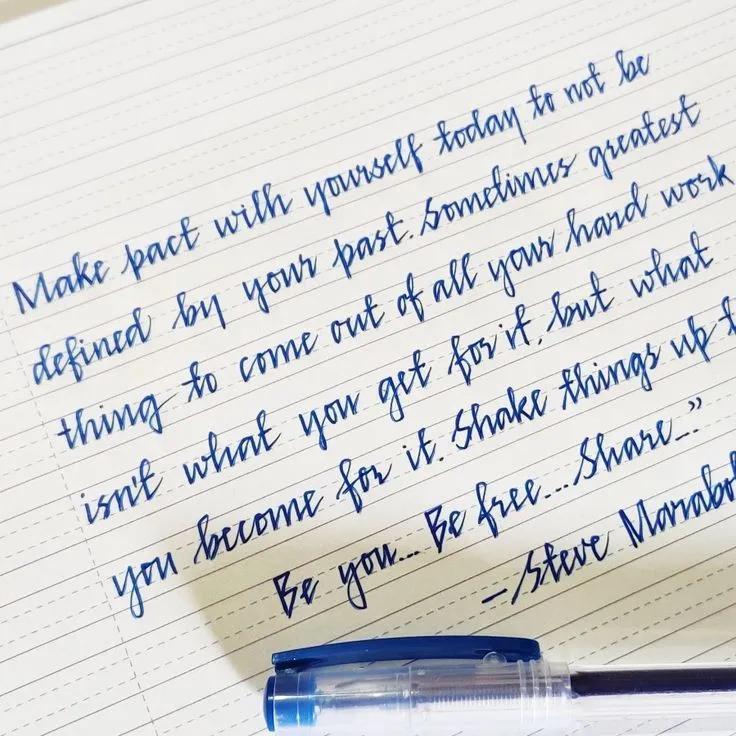 Make pact with yourself today to not be
defined by your past. Sometimes greatest
thing to come out of all your hard work
isn't what you get for it, but what
you become for it. Shake things up t
Be you... Be free... Share..."
-Steve Marabol